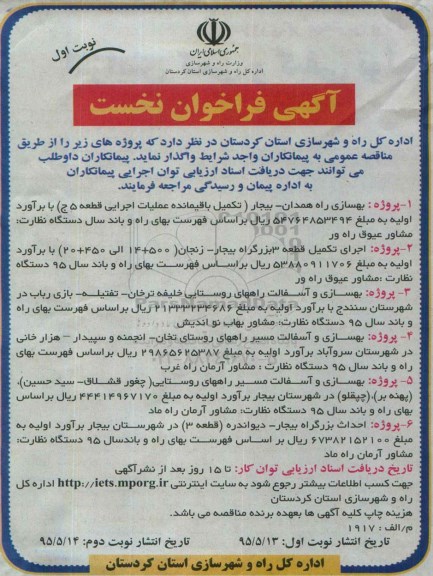 نوبت اول
جمهوری اسلامی ایران
وزارت راه و شهرسازی
اداره کل راه و شهرسازی استان کردستان
آگهی فراخوان نخست
اداره کل راه و شهرسازی استان کردستان در نظر دارد که پروژه های زیر را از طریق
مناقصه عمومی به پیمانکاران واجد شرایط واگذار نماید. پیمانکاران داوطلب
می توانند جهت دریافت اسناد ارزیابی توان اجرایی پیمانکاران
به اداره پیمان و رسیدگی مراجعه فرمایند.
۱-پروژه: بهسازی راه همدان- بیجار (تکمیل باقیمانده عملیات اجرایی قطعه ۵ج) با برآورد
اولیه به مبلغ ۵۴۷۶۴۸۵۳۴۹۴ ریال براساس فهرست بهای راه و باند سال ۹۵ دستگاه نظارت:
مشاور عیوق راه ور
۲-پروژه: اجرای تکمیل قطعه ۳بزرگراه بیجار- زنجان( ۵۰۰+۱۴ الی ۴۵۰+۲۰) با برآورد
اولیه به مبلغ ۵۳۸۸۰۹۱۱۷۰۶ ریال براساس فهرست بهای راه و باند سال ۹۵ دستگاه
نظارت :مشاور عیوق راه ور
۳- پروژه: بهسازی و آسفالت راههای روستایی خلیفه ترخان- تفتیله- بازی رباب در
شهرستان سنندج با برآورد اولیه به مبلغ ۲۱۳۳۳۲۳۴۶۸۶ ریال براساس فهرست بهای راه
و باند سال ۹۵ دستگاه نظارت: مشاور بهاب نو اندیش
۴- پروژه: بهسازی و آسفالت مسیر راههای روستای تخان- انجمنه و سپیدار – هزار خانی
در شهرستان سروآباد برآورد اولیه به مبلغ ۲۹۸۶۵۶۲۵۳۸۷ ریال براساس فهرست بهای
راه و باند سال ۹۵ دستگاه نظارت : مشاور آرمان راه غرب
۵- پروژه: بهسازی و آسفالت مسیر راههای روستایی( چغور قشلاق- سید حسین)،
(پهنه بر)،(چپقلو) در شهرستان بیجار برآورد اولیه به مبلغ ۴۴۴۱۴۹۶۷۱۷۰ ریال براساس
بهای راه و باند سال ۹۵ دستگاه نظارت: مشاور آرمان راه ماد
۶-پروژه: احداث بزرگراه بیجار- دیواندره (قطعه ۳) در شهرستان بیجار برآورد اولیه به
مبلغ ۶۷۳۸۲۱۵۲۱۰۰ ریال بر اساس فهرست بهای راه و باندسال ۹۵ دستگاه نظارت:
مشاور آرمان راه ماد
تاریخ دریافت اسناد ارزیابی توان کار: تا ۱۵ روز بعد از نشرآگهی
جهت کسب اطلاعات بیشتر رجوع شود به سایت اینترنتی http://iets.mporg.ir اداره کل
راه و شهرسازی استان کردستان
هزینه چاپ کلیه آگهی ها بعهده برنده مناقصه می باشد.
م/الف : ۱۹۱۷
تاریخ انتشار نوبت اول: ۹۵/۵/۱۳ تاریخ انتشار نوبت دوم: ۹۵/۵/۱۴
اداره کل راه و شهرسازی استان کردستان